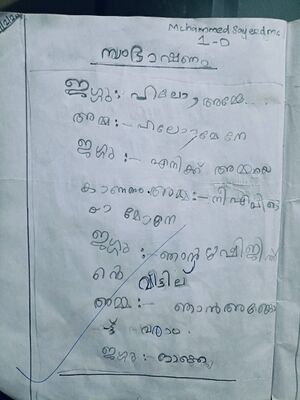 Mohammed Sayeed mc
1-D
സംഭാഷണം
ജഗ്ഗു:- ഹലോ, അമ്മേ...
അമ്മ:- ഹലോ മോനേ
ജഗ്ഗു:- എനിക്ക് അമ്മയെ
കാണണം. അമ്മ:- നീ എവിടെ
ടാ മോനേ
ജഗ്ഗു:- ഞാൻ ഋഷിജിത്തി
ന്റെ വീട്ടില
അമ്മ:- ഞാൻ അങ്ങോ
ട്ട് വരാം
ജഗ്ഗു: ഓക്കെ